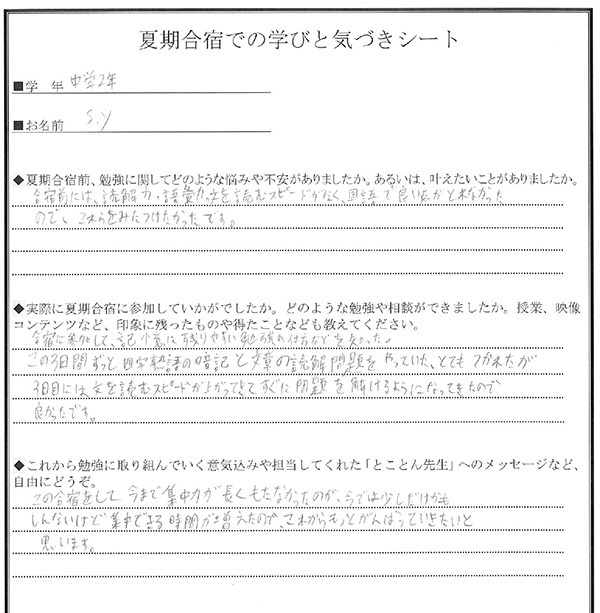 夏期合宿での学びと気づきシート
■学 年 中学2年
■お名前 S.Y
◆夏期合宿前、勉強に関してどのような悩みや不安がありましたか。あるいは、叶えたいことがありましたか。
合宿前には、読解力・語彙力、文を読むスピードがなく、国語で良い点がとれなかった
ので、これらをみにつけたかったです。
◆実際に夏期合宿に参加していかがでしたか。どのような勉強や相談ができましたか。授業、映像
コンテンツなど、印象に残ったものや得たことなども教えてください。
合宿に参加して、記憶に残りやすい勉強の仕方がを知った。
この3日間ずっと四字熟語の暗記と文章の読解問題をやっていた、とてもつかれたが
3日目には、文を読むスピードが上がってきてすぐに問題を解けるようになってきたので
良かったです。
◆これから勉強に取り組んでいく意気込みや担当してくれた「とことん先生」へのメッセージなど、
自由にどうぞ。
この合宿をして、今まで集中力が長くもたなかったのが、今では少しだけかも
しんないけど集中できる時間が増えたので、これからもっとがんばっていきたいと
思います。